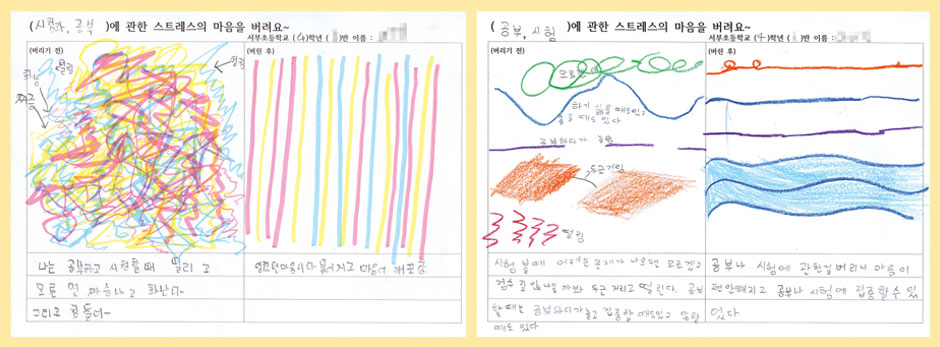 ( 시험과, 공부 )에 관한 스트레스의 마음을 버려요~
서부초등학교 (4)학년 ( )반 이름 :
(버리기 전)
(버린 후)
떨림
떨림
짜증
나는 공부하고 시험할 때 떨리고
모르면 짜증나고 화난다~
그리고 힘들다~
( 공부, 시험 )에 관한 스트레스의 마음을 버려요~
서부초등학교 (4)학년 ( )반 이름 :
(버리기 전)
(버린 후)
하기 싫을 때도 있고
좋을 때도 있다
공부하다가 놀음
두근거림
떨림
시험 볼 때 어려운 문제가 나오면 모르겠고
점수 잘 안 나올까봐 두근거리고 떨린다. 공부
할 때는 공부하다가 놀고 집중할 때도 있고
때도 있다
공부나 시험에 관한걸 버리니 마음이
편안해지고 공부나 시험에 집중할 수 있
었다